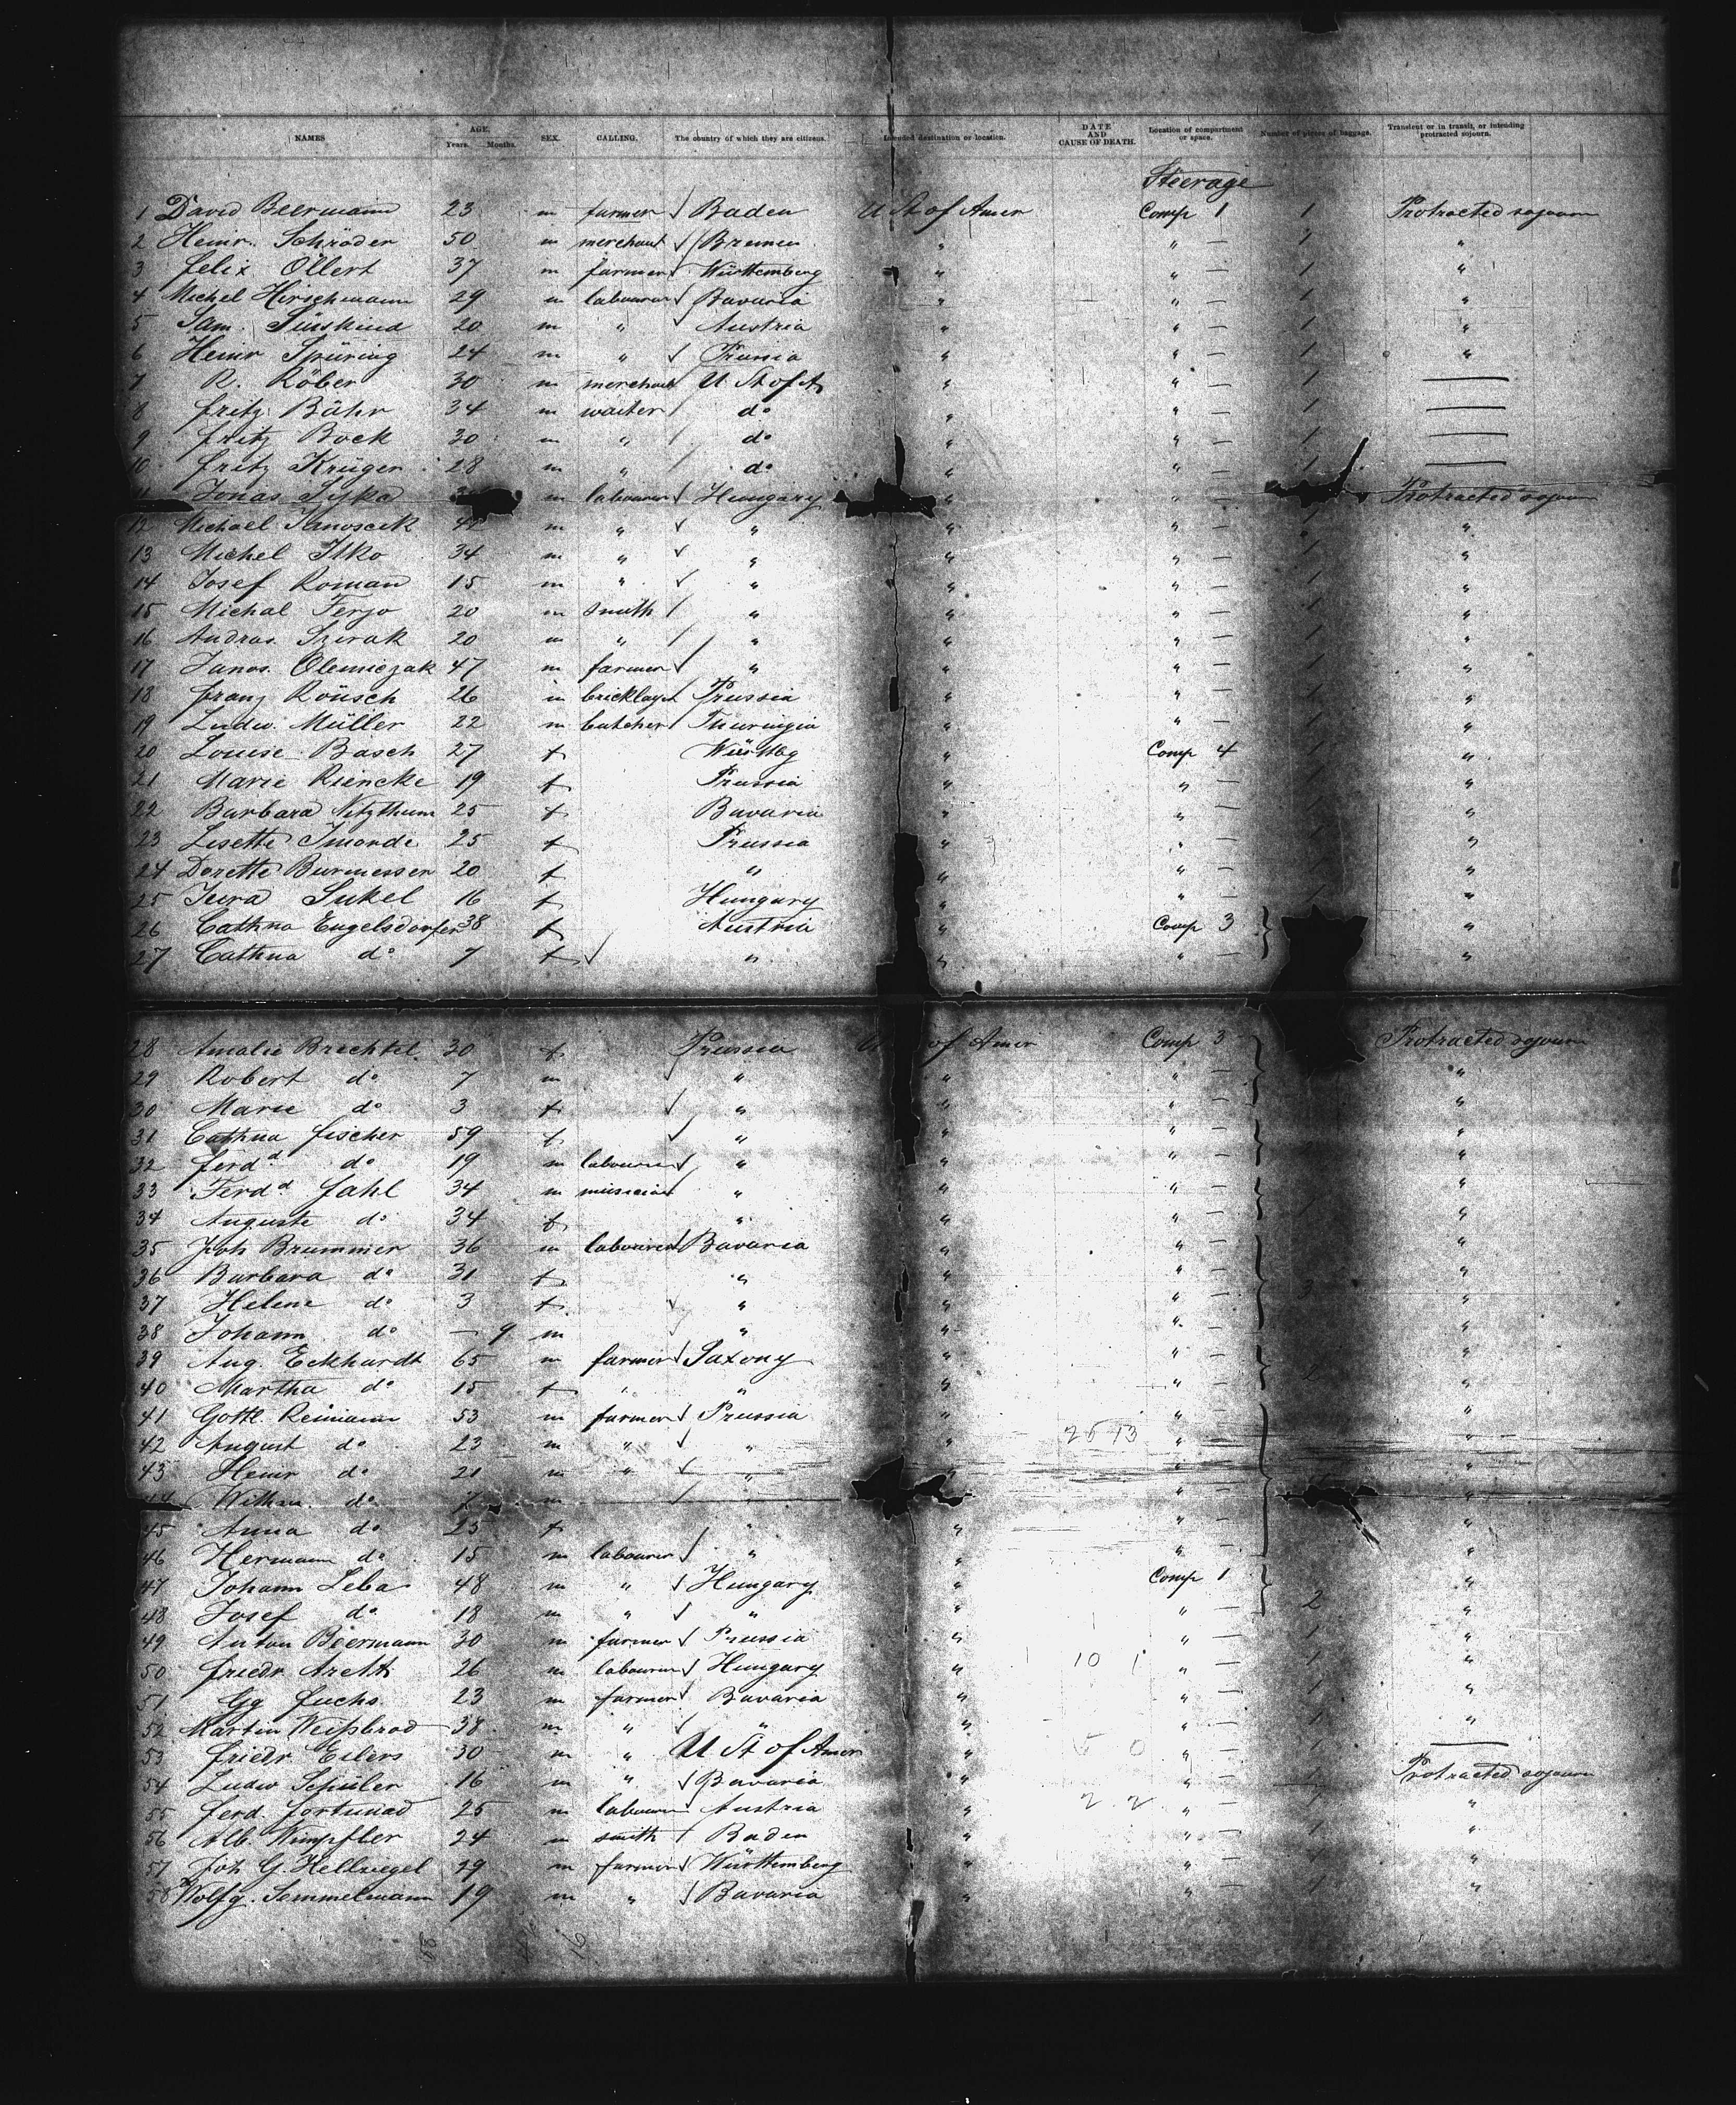 NAMES AGE. Years. Months. SEX. CALLING. The country of which they are citizens. Intended destination or location. DATE AND CAUSE OF DEATH. Location of compartment or space. Number of pieces of baggage. Transient or in transit, or intending protracted sojourn.
Steerage
1 David Beermann 23 m farmer Baden U St of Amer Comp 1 1 Protracted sojourn
2 Heinr. Schröder 50 m merchant Bremen " " — 1 "
3 Felix Öllert 37 m farmer Württemberg " " — 1 "
4 Michel Hirschmann 29 m labourer Bavaria " " — 1 "
5 Sam. Süskind 20 m " Austria " " — 1 "
6 Heinr Spüring 24 m " Prussia " " — 1 "
7 R. Röber 30 m merchant U St of A " " — 1 —
8 Fritz Bähr 34 m waiter do " " — 1 —
9 Fritz Bock 30 m " do " " — 1 —
10 Fritz Krüger 28 m " do " " — 1 —
11 Jonas m labourer Hungary " " — Protracted sojourn
12 Michael m " " " " — 1 "
13 Michel Ilko 34 m " " " " — 1 "
14 Josef Roman 15 m " " " " — 1 "
15 Michal Ferjo 20 m smith " " " — 1 "
16 Andras 20 m " " " " — 1 "
17 Janos Olemiczak 47 m farmer " " " — 1 "
18 Franz Rönsch 26 m bricklayer Prussia " " — 1 "
19 Ludw. Müller 22 m butcher Thuringia " " — 1 "
20 Louise Basch 27 f Württbg " Comp 4 1 "
21 Marie Riencke 19 f Prussia " " — 1 "
22 Barbara Vitzthum 25 f Bavaria " " — 1 "
23 Lisette Imorde 25 f Prussia " " — 1 "
24 Dorette Burmesser 20 f " " " — 1 "
25 Sukel 16 f Hungary " " — 1 "
26 Cathna Engelsdorfer 38 f Austria " Comp 3 "
27 Cathna do 7 f " " " — "
28 Amalie Brechtel 30 f Prussia U of Amer Comp 3 Protracted sojourn
29 Robert do 7 m " " " — "
30 Marie do 3 f " " " — "
31 Cathna Fischer 59 f " " " — "
32 Ferdd do 19 m labourer " " " — "
33 Ferdd Jahl 34 m musician " " " — "
34 Auguste do 34 f " " " — "
35 Joh Brummer 36 m labourer Bavaria " " — "
36 Barbara do 31 f " " " — "
37 Helene do 3 f " " " — 3 "
38 Johann do — 9 m " " " — "
39 Aug. Eckhardt 65 m farmer Saxony " " — "
40 Martha do 15 f " " " " — "
41 Gottl. Reimann 53 m farmer Prussia " " — "
42 August do 23 m " " " 2673 " — "
43 Heinr do 21 m " " " " — "
44 do m " — "
45 Anna do 23 f " " " — "
46 Hermann do 15 m labourer " " " — "
47 Johann Leba 48 m " Hungary " Comp 1 "
48 Josef do 18 m " " " " — 2 "
49 Anton Beermann 30 m farmer Prussia " " — 1 "
50 Friedr 26 m labourer Hungary " 10 " — 1 "
51 Gg Fuchs 23 m farmer Bavaria " " — 1 "
52 Martin Weißbrod 38 m " " " " — 1 "
53 Friedr. Eilers 30 m " U. St of Amer " " — 1 —
54 Ludw Schüler 16 m " Bavaria " " — 1 Protracted sojourn
55 Ferd. Fortunad 25 m labourer Austria " 2 2 " — 1 "
56 Alb. Wimpfler 24 m smith Baden " " — 1 "
57 Joh G. Hellriegel 29 m farmer Württemberg " " — 1 "
58 Wolfg. Semmelmann 19 m " Bavaria " " — 1 "
58 16